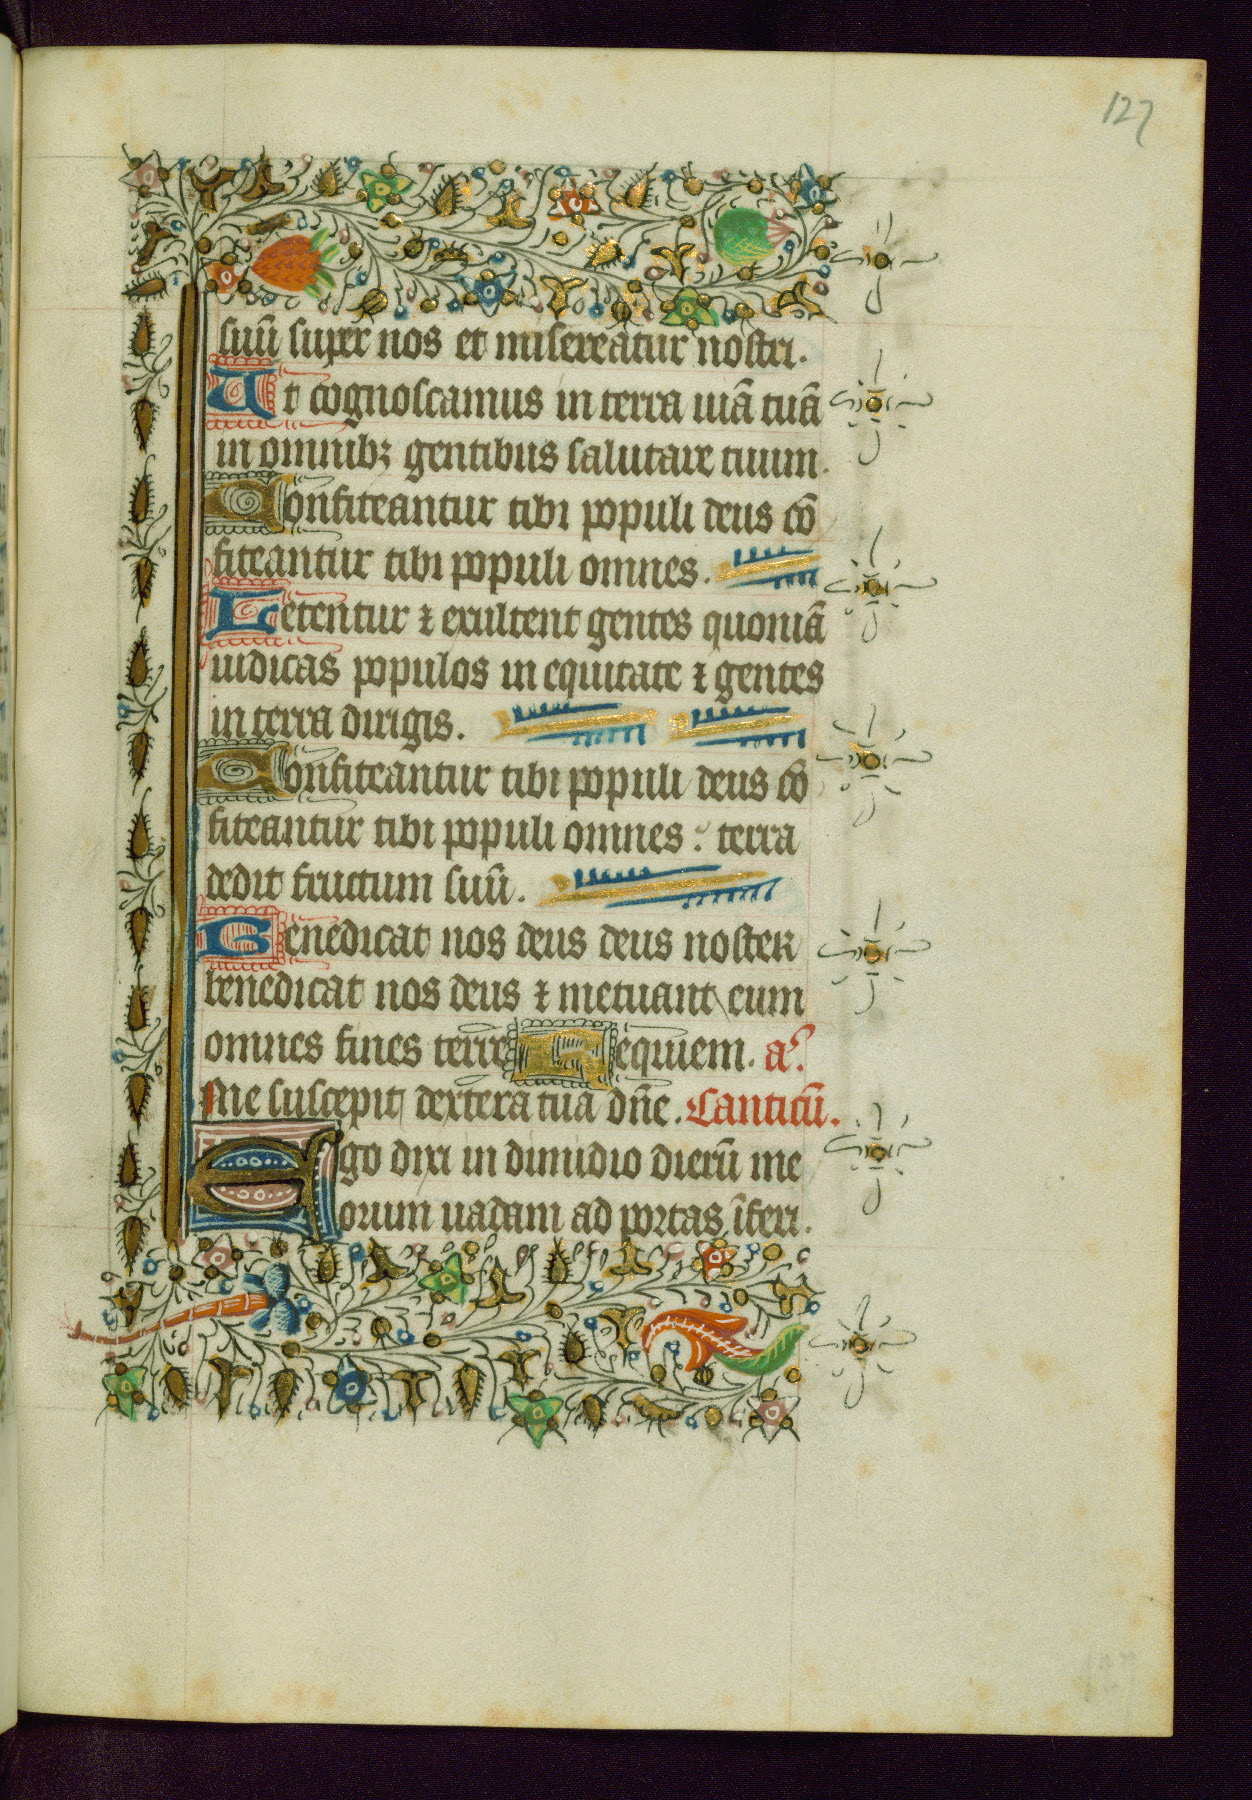 127
suū super nos et misereatur nostri.
Ut cognoscamus in terra uiā tuā
in omnibꝫ gentibus salutare tuum.
Confiteantur tibi populi deus cō
fiteantur tibi populi omnes.
Letentur ⁊ exultent gentes quoniā
iudicas populos in equitate ⁊ gentes
in terra dirigis.
Confiteantur tibi populi deus cō
fiteantur tibi populi omnes : terra
dedit fructum suū.
Benedicat nos deus deus noster
benedicat nos deus ⁊ metuant eum
omnes fines terre Requiem. a͛.
Me suscepit dextera tua dn̄e. Canticū.
Ego dixi in dimidio dierū me
orum uadam ad portas īferi.